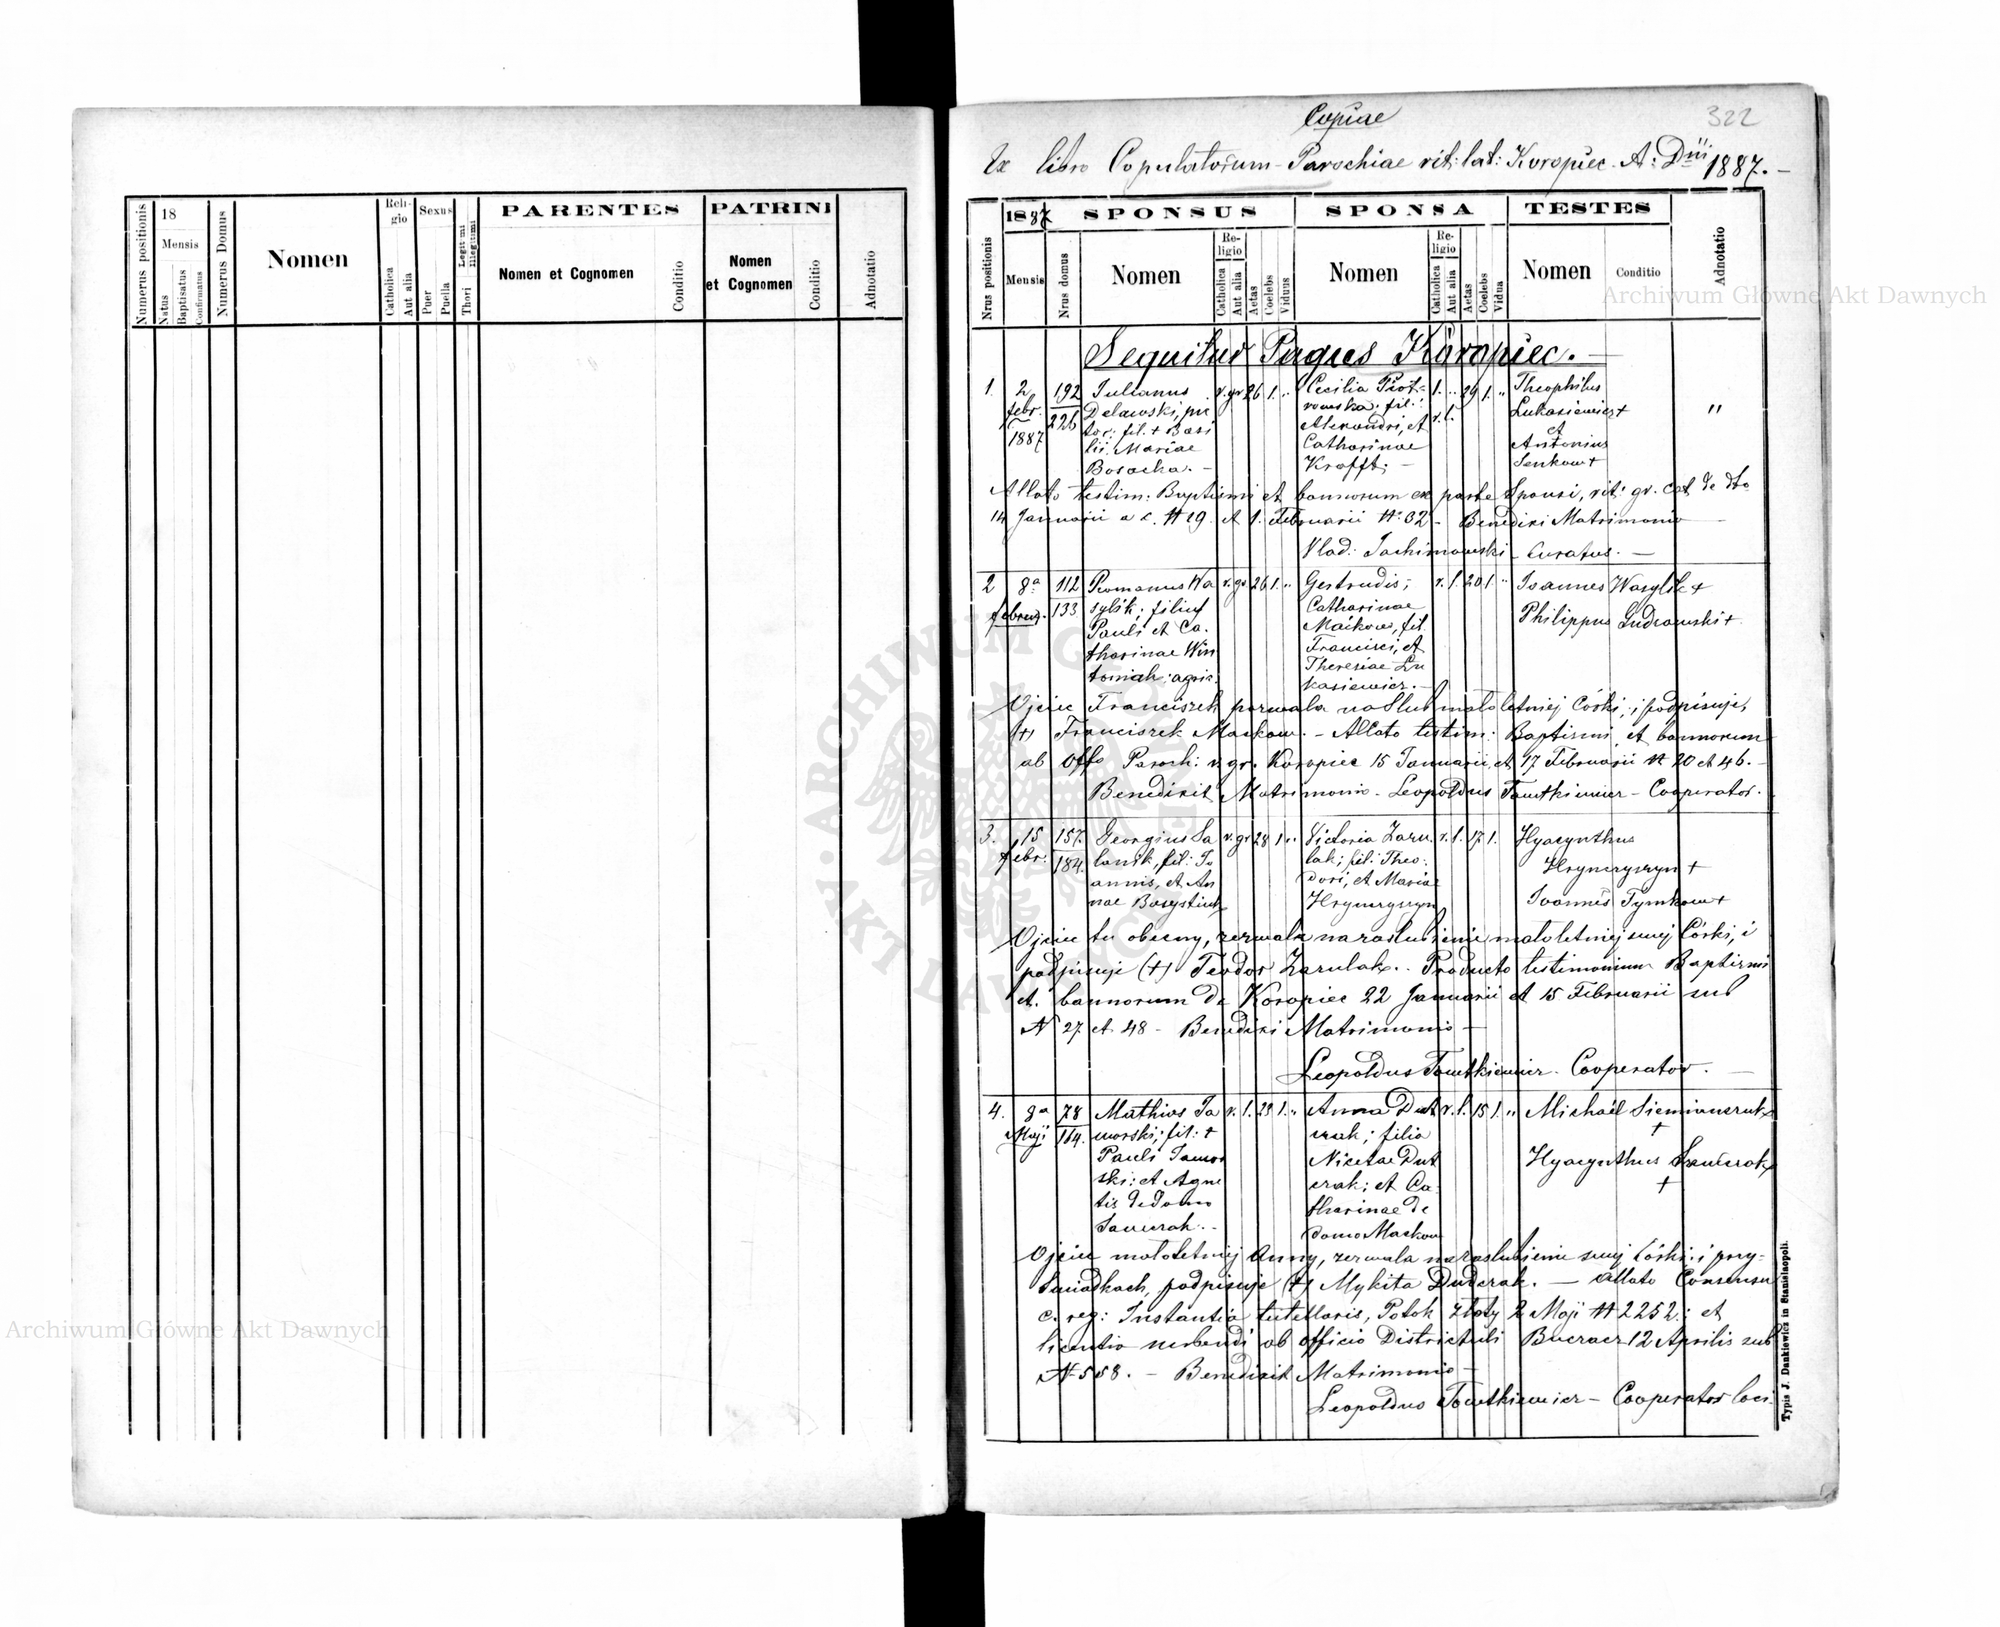 Numerus positionis
18
Mensis
Natus
Baptisatus
Confirmatus
Numerus Domus
Nomen
Religio
Catholica
Aut alia
Sexus
Puer
Puella
Legitimi
Illegitimi
Thori
PARENTES
Nomen et Cognomen
Conditio
PATRINI
Nomen
et Cognomen
Conditio
Adnotatio
Copiae
322
Ex libro Copulatorum Parochiae rit: lat: Koropiec. A: Dni 1887. -
Nrus positionis
1887
Mensis
Nrus domus
SPONSUS
Nomen
Religio
Catholica
Aut alia
Aetas
Coelebs
Viduus
SPONSA
Nomen
Religio
Catholica
Aut alia
Aetas
Coelebs
Vidua
TESTES
Nomen
Conditio
Adnotatio
Sequitur Pagus Koropiec. -
1. 2 192 Julianus r.gr 26 1. " Cecilia Piot= 1. " 29 1. " Theophilus
febr. 226 rowska; fil: r.l. Lukasiewicz +
1887 fil. + Basi Alexandri, et et "
lii. Mariae Catharinae Antonius
Bosacka. - Krafft; - Senkow +
Allato testim: Baptismi et bannorum ex parte Sponsi, rit: gr. cat de dto
14 Januarii a c. N 29. et 1. Februarii N: 32 - Benedixi Matrimonio
Vlad: Jachimowski - Curatus. -
2 8a 112 Romanus Wa r.gr. 26 1. " Gertrudis; r. l. 20 1 " Joannes Wasylik +
februar. 133 sylik; filius Catharinae Philippus +
Pauli et Ca= Maćkow, fil.
tharinae Win Francisci, et
toniak; agric. Theresiae Lu
kasiewicz. -
Ojciec Franciszek pozwala na ślub małoletniej Córki; i podpisuje,
(+) Franciszek Maćkow. - Allato testim: Baptismi, et bannorum
ab Offo Paroch: r. gr. Koropiec 15 Januarii, et 17 Februarii N 20 et 46. -
Benedixit Matrimonio - Leopoldus - Cooperator.
3. 15 157. Georgius Sa r. gr 28 1 " Victoria Zaru r. l. 17 1. Hyacynthus
febr. 184. fil: Jo lak; fil: Theo= Hryncyszyn +
annis, et An dori, et Mariae Joannes Tymkow +
nae Hryncyszyn
Ojciec tu obecny, zezwala na zaślubienie małoletniej swej Córki, i
podpisuje (+) Teodor Zarulak. - Producto testimonium Baptismi
et bannorum de Koropiec 22 Januarii et 15 Februarii sub
N 27 et 48 - Benedixi Matrimonio -
Leopoldus - Cooperator. -
4. 8a 78 Mathias Ja r. l. 29 1. " Anna Dud r. l. 15 1. " Michaël Siemianczuk
Maji 164. worski; fil: + czak; filia +
Pauli Jawor Nicetae Dud Hyacynthus
ski: et Agne czak; et Ca +
tis de domo tharinae de
domo Maćkow
Ojciec małoletniej Anny, zezwala na zaślubienie swej Córki; i przy=
świadkach, podpisuje (+) Mykita Dudczak. - Allato Consensu
c. reg: Instantia tutellaris, Potok złoty 2 Maji N 2252; et
licentia nubendi ab Officio Districtuli Buczacz 12 Aprilis sub
N 558. - Benedixit Matrimonio -
Leopoldus - Cooperator loci.
Typis J. Dankiewicz in Stanislaopoli.
Archiwum Główne Akt Dawnych
Archiwum Główne Akt Dawnych
ARCHIWUM GŁÓWNE AKT DAWNYCH